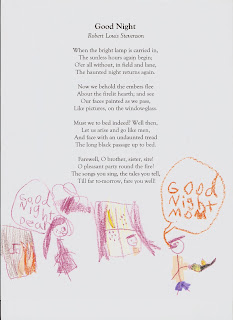 Good Night
Robert Louis Stevenson
When the bright lamp is carried in,
The sunless hours again begin;
O'er all without, in field and lane,
The haunted night returns again.
Now we behold the embers flee
About the firelit hearth; and see
Our faces painted as we pass,
Like pictures, on the window-glass.
Must we to bed indeed? Well then,
Let us arise and go like men,
And face with an undaunted tread
The long black passage up to bed.
Farewell, O brother, sister, sire!
O pleasant party round the fire!
The songs you sing, the tales you tell,
Till far to-morrow, fare you well!
Good
Night
Dear
GOOD
Night
Mom